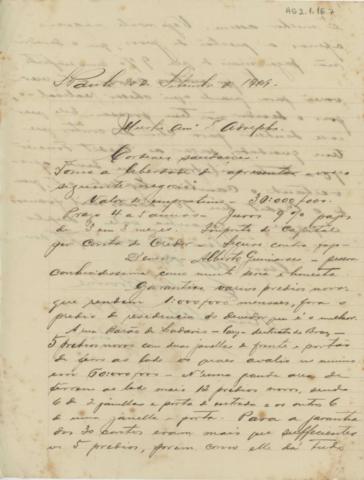 AG2.1.16.7
S. Paulo 20 de Setembro de 1909.
Illustre Amº Sr. Adolpho.
Cordeaes saudações.
Tomo a liberdade de apresentar a vosso
seguinte negocio
Valor do emprestimo 30:000$000.
Prazo 4 a 5 annos - Juros 9% pagos
de 3 em 3 mezes. Imposto de Capital
por conta do Credor - Seguro contra fogo
Devedor Alberto Guimarães - pessoa
conhecidissima como muito seria e honesta
Garantias varios predios novos
que rendem 1:000$000 mensaes, fora o
predio de residencia do devedor que é o melhor.
A rua Barão de Ladario - Braz
5 predios novos com duas janellas de frente e portão
de ferro ao lado os quaes avalio no minimo
em 60:000$000 - N'uma grande area de
terreno ao lado mais 12 predios novos, sendo
6 de 2 janellas e porta de entrada e os outros 6
de uma janella e porta. Para a garantia
dos 30 contos eram mais que sufficientes
os 5 predios, porem como elle da tudo